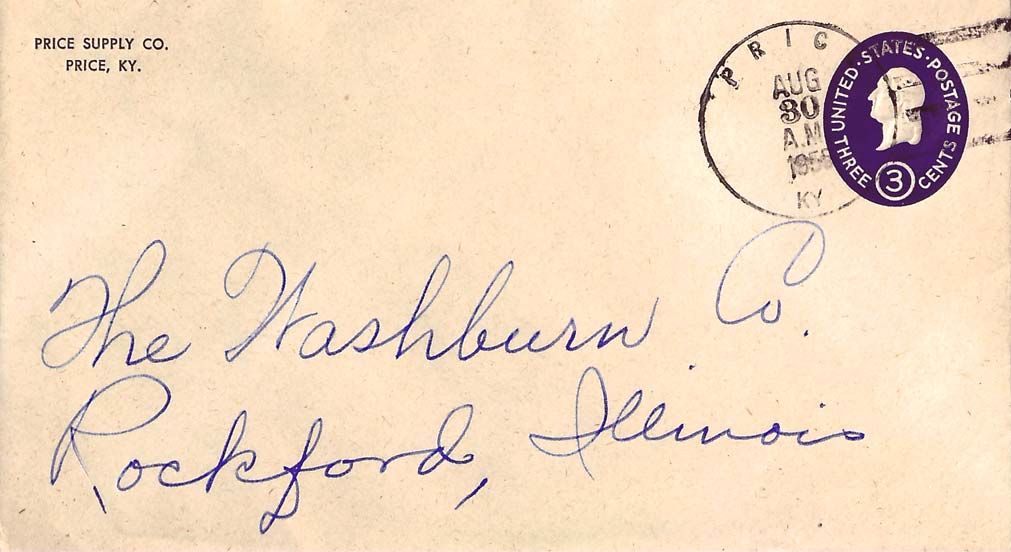 PRICE SUPPLY CO.
PRICE, KY.
PRIC
AUG
30
A.M
KY
UNITED · STATES · POSTAGE
THREE 3 CENTS
The Washburn Co.
Rockford, Illinois